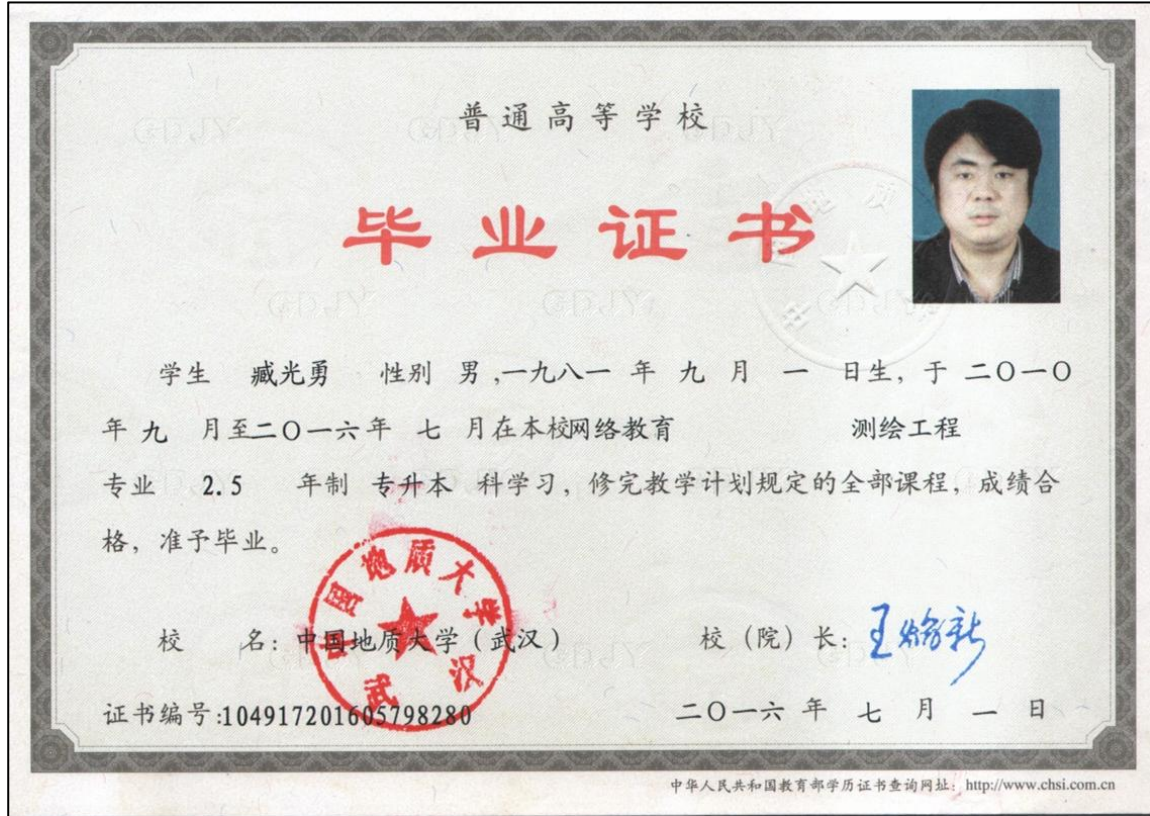 普通高等学校
毕业证书
学生 臧光勇 性别 男,一九八一 年 九 月 一 日生,于 二〇一〇
年 九 月至二〇一六年 七 月在本校网络教育 测绘工程
专业 2.5 年制 专升本 科学习,修完教学计划规定的全部课程,成绩合
格,准予毕业。
中国地质大学
武汉
校 名:中国地质大学(武汉) 校(院)长:王焰新
证书编号:104917201605798280 二〇一六 年 七 月 一 日
中华人民共和国教育部学历证书查询网址:http://www.chsi.com.cn